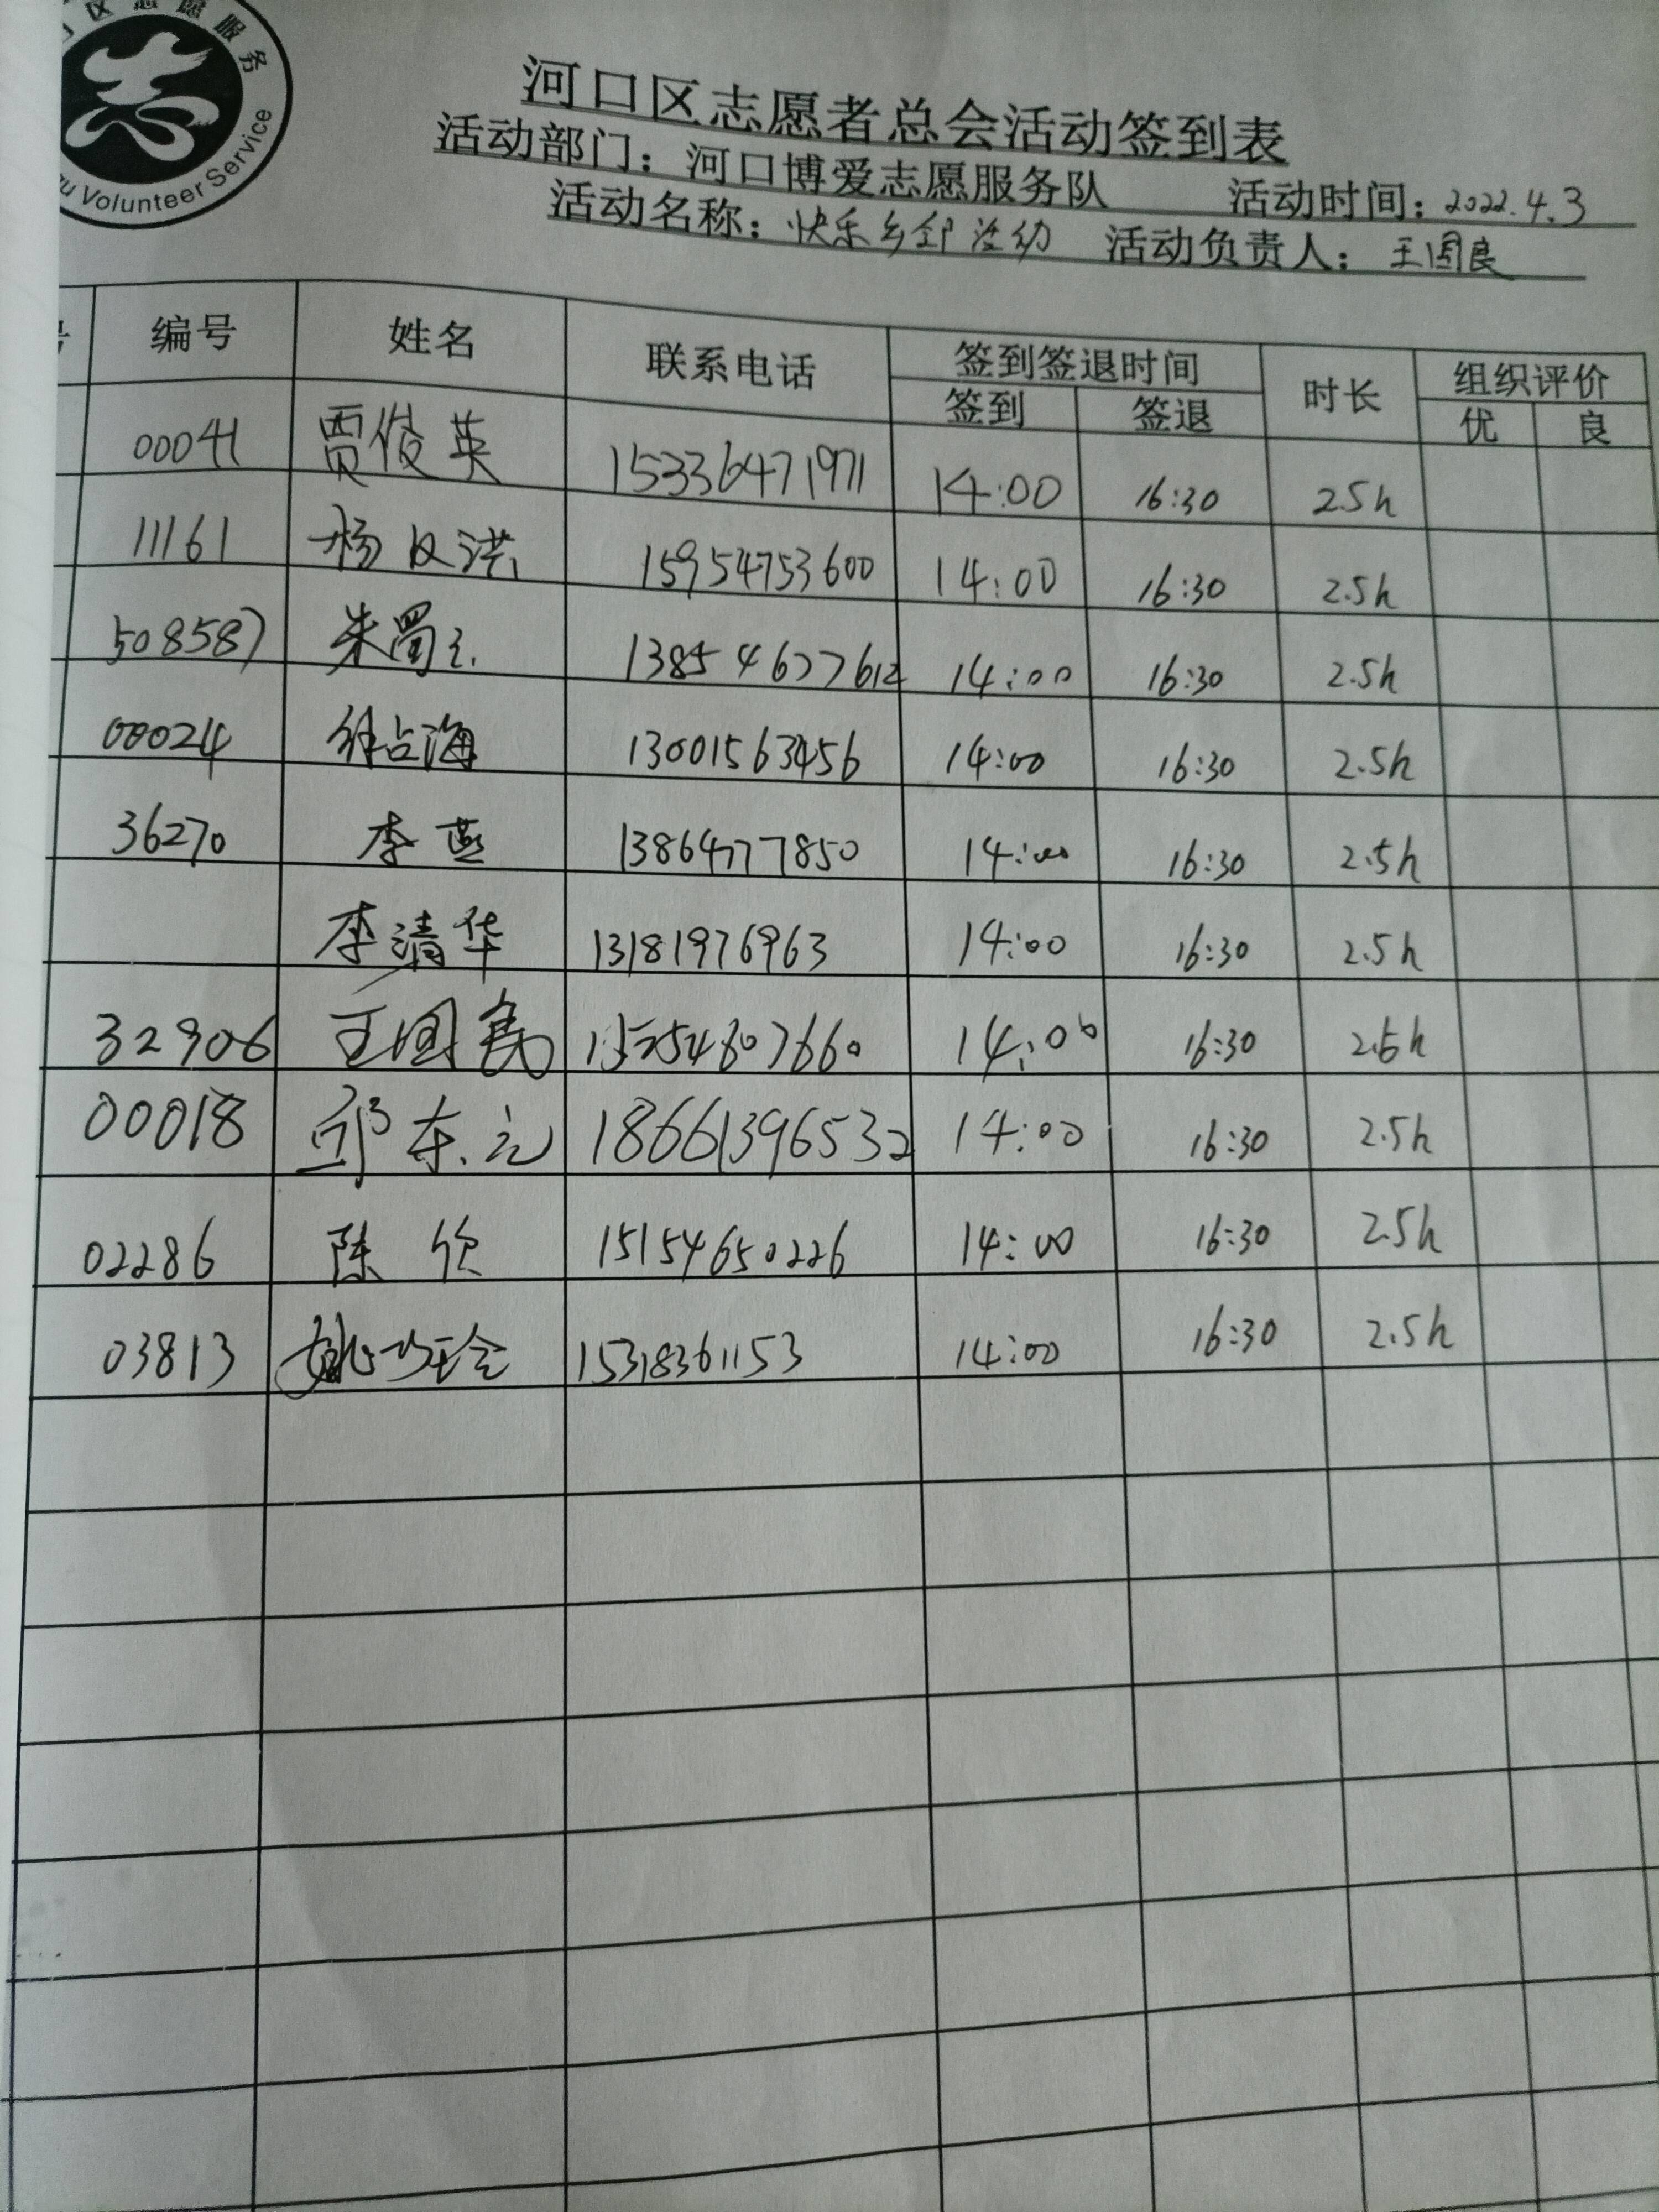 区志愿服务
Volunteer Service
河口区志愿者总会活动签到表
活动部门：河口博爱志愿服务队 活动时间：2022.4.3
活动名称：快乐乡邻活动 活动负责人：王国良
编号 姓名 联系电话 签到签退时间 时长 组织评价
签到 签退 优 良
00041 贾俊英 15336471971 14:00 16:30 2.5h
11161 杨 洪 15954753600 14:00 16:30 2.5h
508587 朱蜀 13854677612 14:00 16:30 2.5h
00024 占海 13001563456 14:00 16:30 2.5h
36270 李燕 13864777850 14:00 16:30 2.5h
李清华 13181976963 14:00 16:30 2.5h
32906 王国 14:00 16:30 2.5h
00018 邱东元 18661396532 14:00 16:30 2.5h
02286 陈欣 15154650226 14:00 16:30 2.5h
03813 姚巧玲 15318361153 14:00 16:30 2.5h